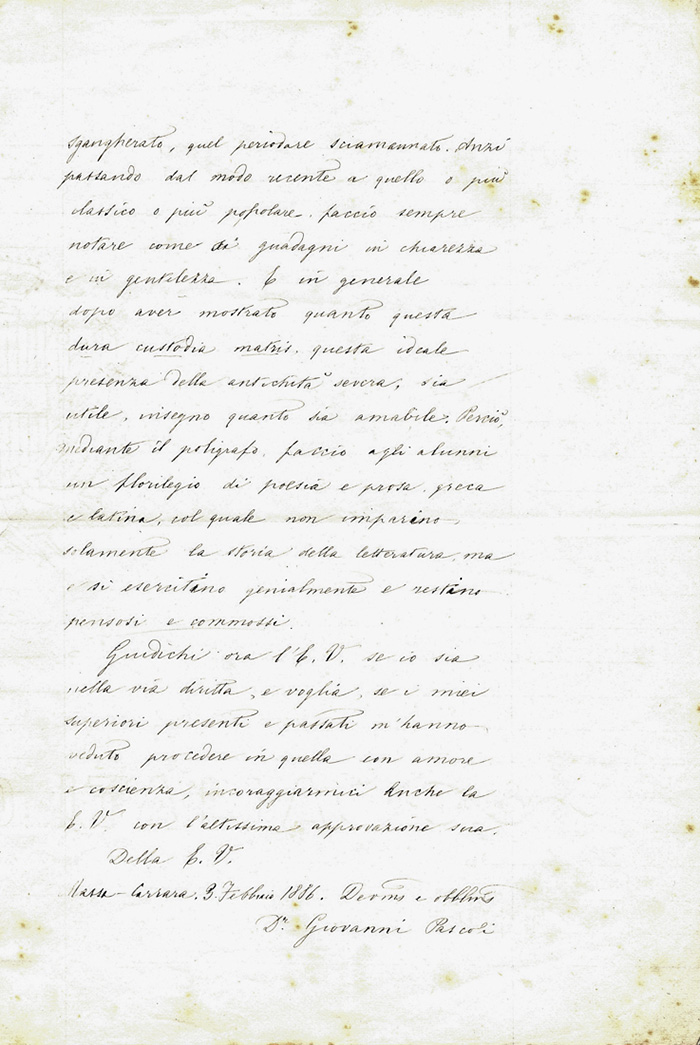 sgangherato, quel periodare sciamannato. Anzi
passando dal modo recente a quello o più
classico o più popolare, faccio sempre
notare come si guadagni in chiarezza
e in gentilezza. E in generale
dopo aver mostrato quanto questa
dura custodia matris, questa ideale
presenza della antichità severa, sia
utile, insegno quanto sia amabile. Perciò,
mediante il poligrafo, faccio agli alunni
un florilegio di poesia e prosa, greca
e latina, col quale non imparino
solamente la storia della letteratura, ma
e si esercitino genialmente e restino
pensosi e commossi.
Giudichi ora l'E. V. se io sia
nella via diritta, e voglia, se i miei
superiori presenti e passati m'hanno
veduto procedere in quella con amore
e coscienza, incoraggiarmici anche la
E. V. con l'altissima approvazione sua.
Della E. V.
Massa-Carrara, 3. Febbraio 1886. Devms e obblms
Dr. Giovanni Pascoli